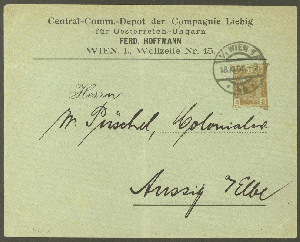 Central-Comm.-Depot der Compagnie Liebig
für Oesterreich-Ungarn
FERD. HOFFMANN
WIEN, I., Wollzeile Nr. 15.
WIEN
Herrn
W. Püschel, Colonialw
Aussig / Elbe